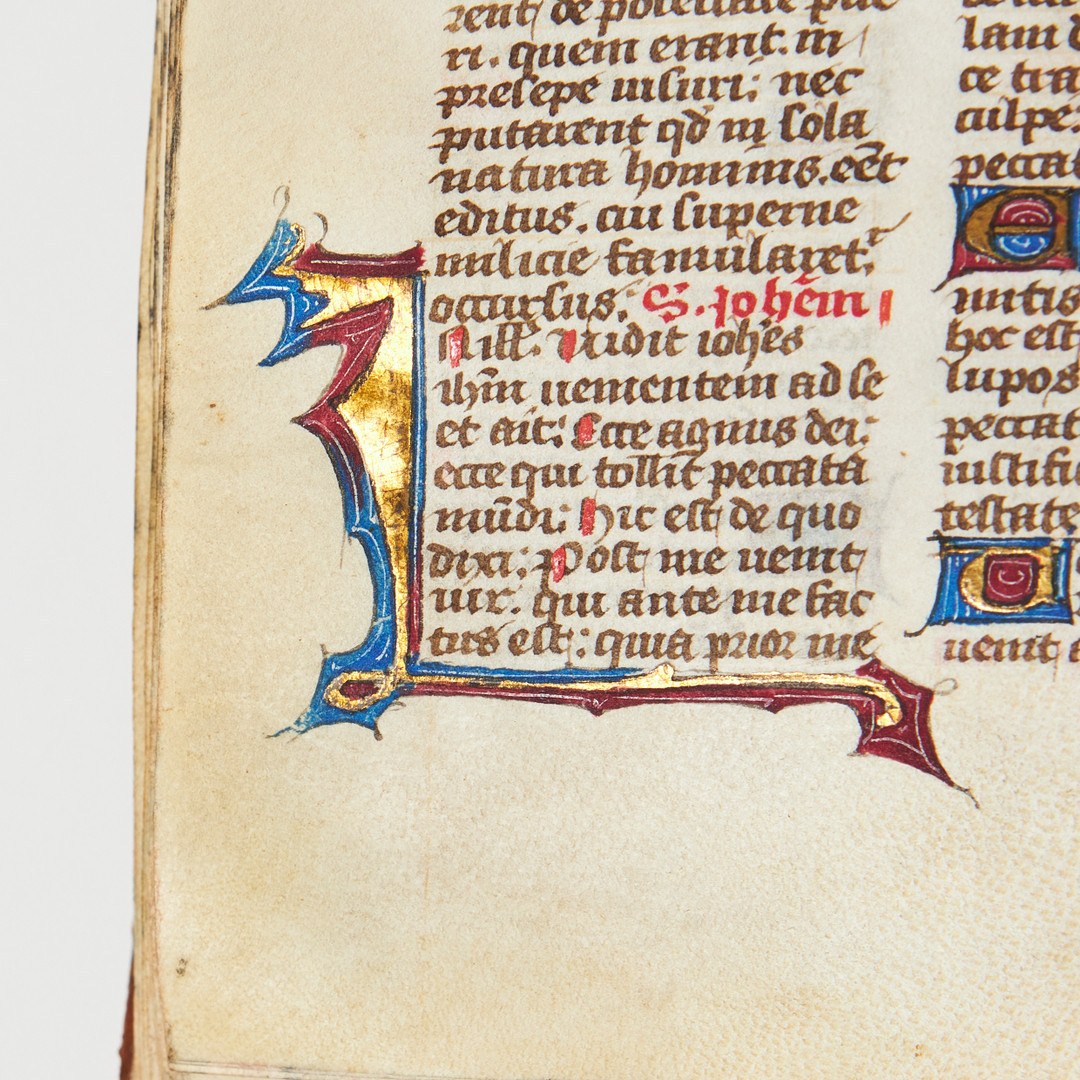 rent de potentate pue
ri. quem erant. in
presepe uisuri; nec
putarent qd in sola
natura hominis. eēt
editus. cui superne
milicie famularet.
occursus. S. johēm
I Ill. Uidit ioh̄es
ih̄m uenientem ad se
et ait; Ecce agnus dei;
ecce qui tollit peccata
mūdi; Hic est de quo
dixi; Post me uenit
uir. qui ante me fac
tus est; quia prior me
lam
ce tra
culpe
peccat
E
mitis
hoc est
lupos
peccat
iustifi
testate
uenit a